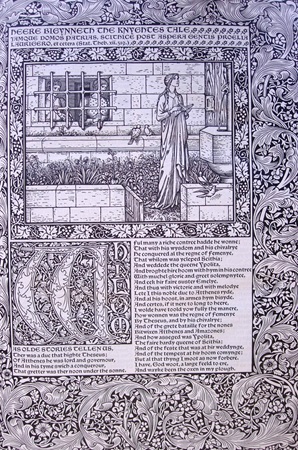 HEERE BIGYNNETH THE KNYGHTES TALE
IAMQUE DOMOS PATRIAS, SCITHICE POST ASPERA GENTIS PROELIA
LAURIGERO, et cetera (Stat. Theb. xii. 519.).
WHILOM
AS OLDE STORIES TELLEN US,
Ther was a duc that highte Theseus;
Of Atthenes he was lord and governour,
And in his tyme swich a conquerour,
That gretter was ther noon under the sonne.
Ful many a riche contree hadde he wonne;
That with his wysdom and his chivalrye
He conquered al the regne of Femenye,
That whilom was ycleped Scithia;
And weddede the queene Ypolita,
And broghte hire hoom with hym in his contree
With muchel glorie and greet solempnytee,
And eek hir faire suster Emelye.
And thus with victorie and with melodye
Lete I this noble duc to Atthenes ryde,
And al his hoost, in armes hym bisyde.
And certes, if it nere to long to heere,
I wolde have toold yow fully the manere,
How wonnen was the regne of Femenye
By Theseus, and by his chivalrye;
And of the grete bataille for the nones
Bitwixen Atthenes and Amazones;
And how asseged was Ypolita,
The faire hardy queene of Scithia;
And of the feste that was at hir weddynge,
And of the tempest at hir hoom comynge;
But al that thyng I moot as now forbere.
I have, God woot, a large feeld to ere,
And wayke been the oxen in my plough.